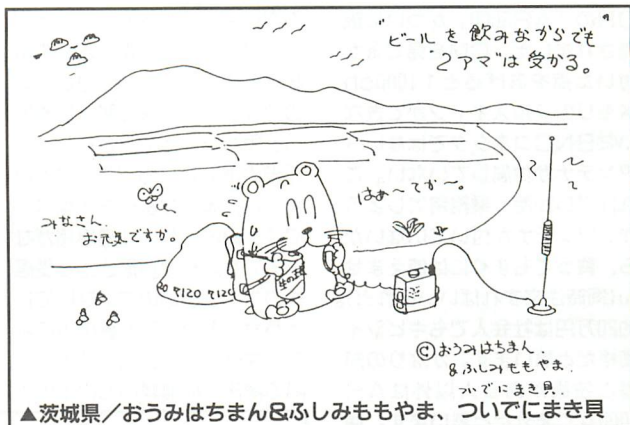 "ビール"を飲みながらでも
"2アマ"は受かる。
はぁ〜てか〜。
みなさん、
お元気ですか。
生の味
7120 7120
©おうみはちまん
&ふしみももやま.
ついでにまき貝.
▲茨城県/おうみはちまん&ふしみももやま、ついでにまき貝